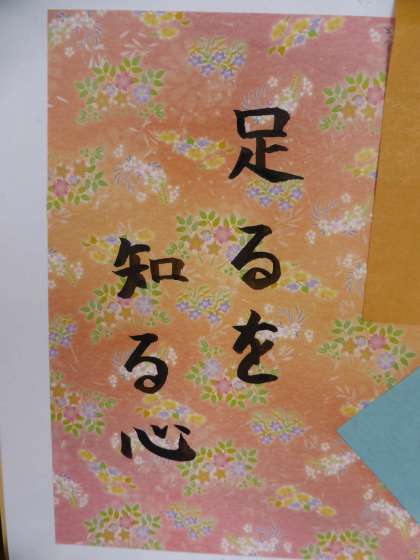 足るを
知る心